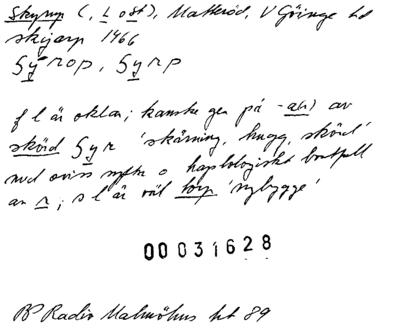 Skyrup (, L o St), Matteröd, V Göinge hd
skijarp 1466
ʃy rop, ʃyrp
f l är oklar; kanske gen på -a(r) av
skörd ʃyr 'skärning, hugg, skörd'
med oviss syftn o haplologiskt bortfall
av r; s l är väl torp 'nybygge'
00031628
BP Radio Malmöhus ht 89